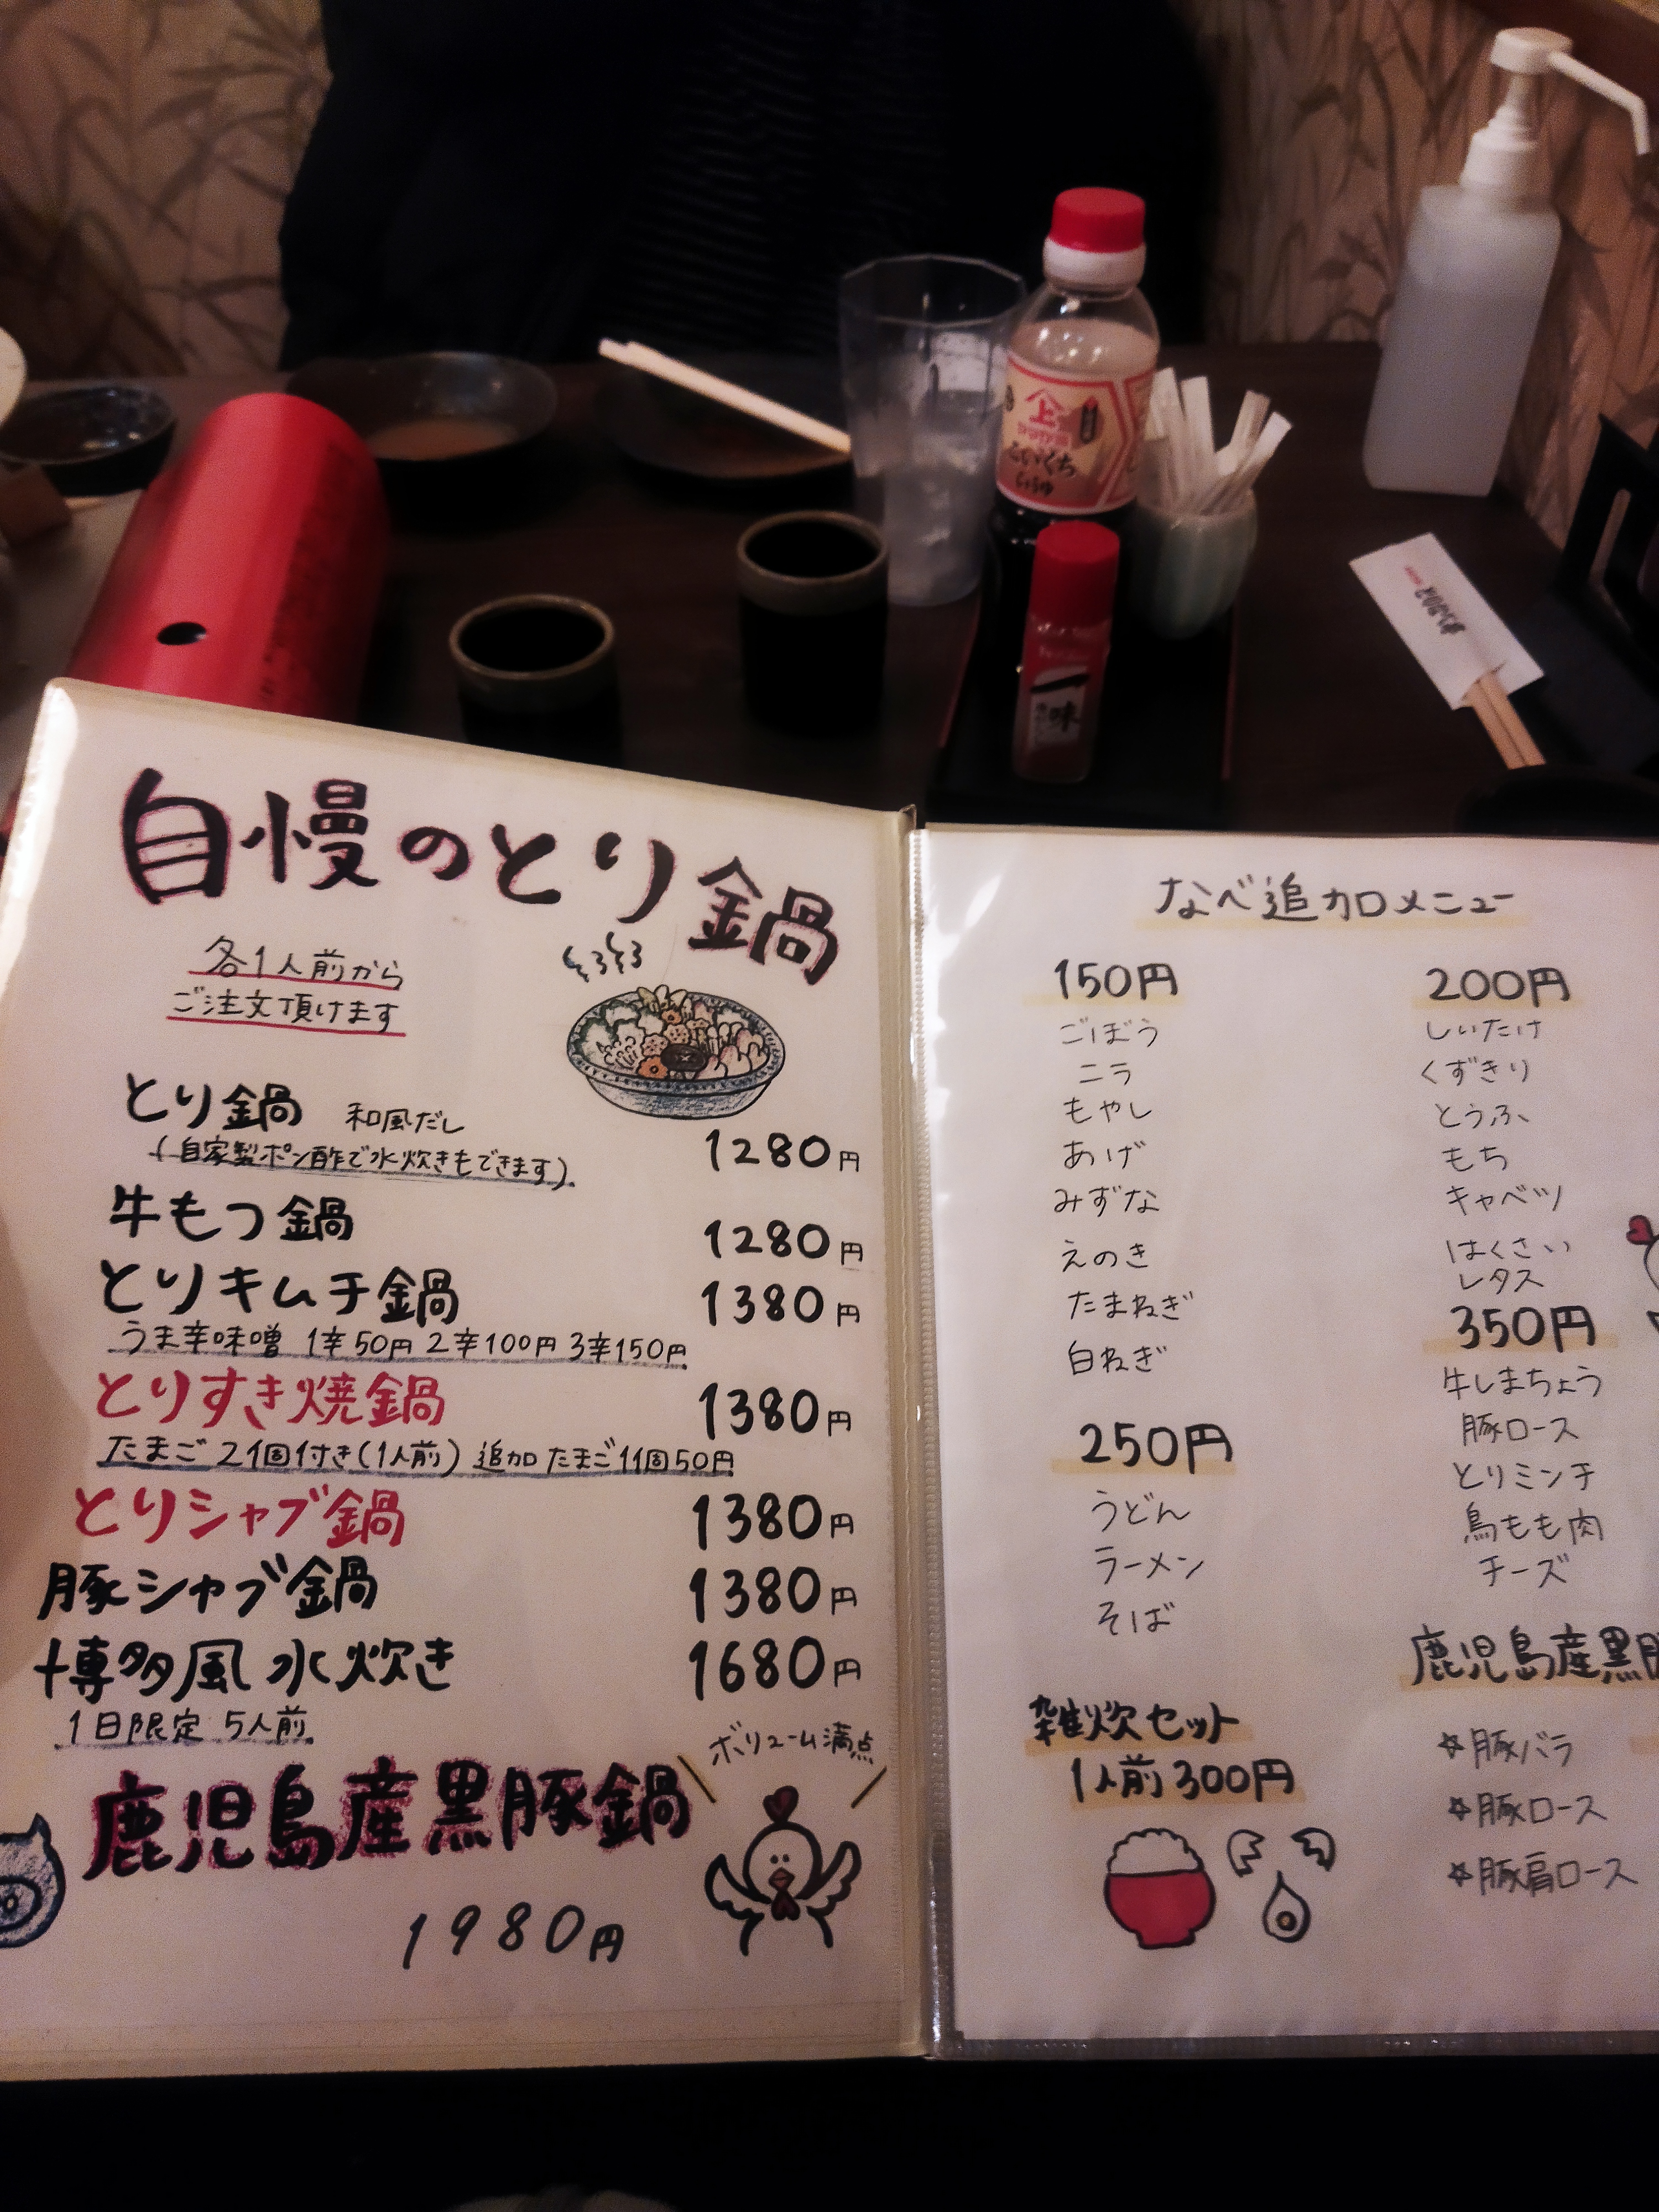 上
こいくち
しょうゆ
一味
自慢のとり鍋
各1人前から
ご注文頂けます
とり鍋 和風だし
(自家製ポン酢で水炊きもできます) 1280円
牛もつ鍋 1280円
とりキムチ鍋 1380円
うま辛味噌 1辛50円 2辛100円 3辛150円
とりすき焼鍋 1380円
たまご2個付き(1人前) 追加たまご1個50円
とりシャブ鍋 1380円
豚シャブ鍋 1380円
博多風水炊き 1680円
1日限定 5人前
ボリューム満点
鹿児島産黒豚鍋
1980円
なべ追加メニュー
150円
ごぼう
ニラ
もやし
あげ
みずな
えのき
たまねぎ
白ねぎ
250円
うどん
ラーメン
そば
雑炊セット
1人前300円
200円
しいたけ
くずきり
とうふ
もち
キャベツ
はくさい
レタス
350円
牛しまちょう
豚ロース
とりミンチ
鳥もも肉
チーズ
鹿児島産黒
☆豚バラ
☆豚ロース
☆豚肩ロース